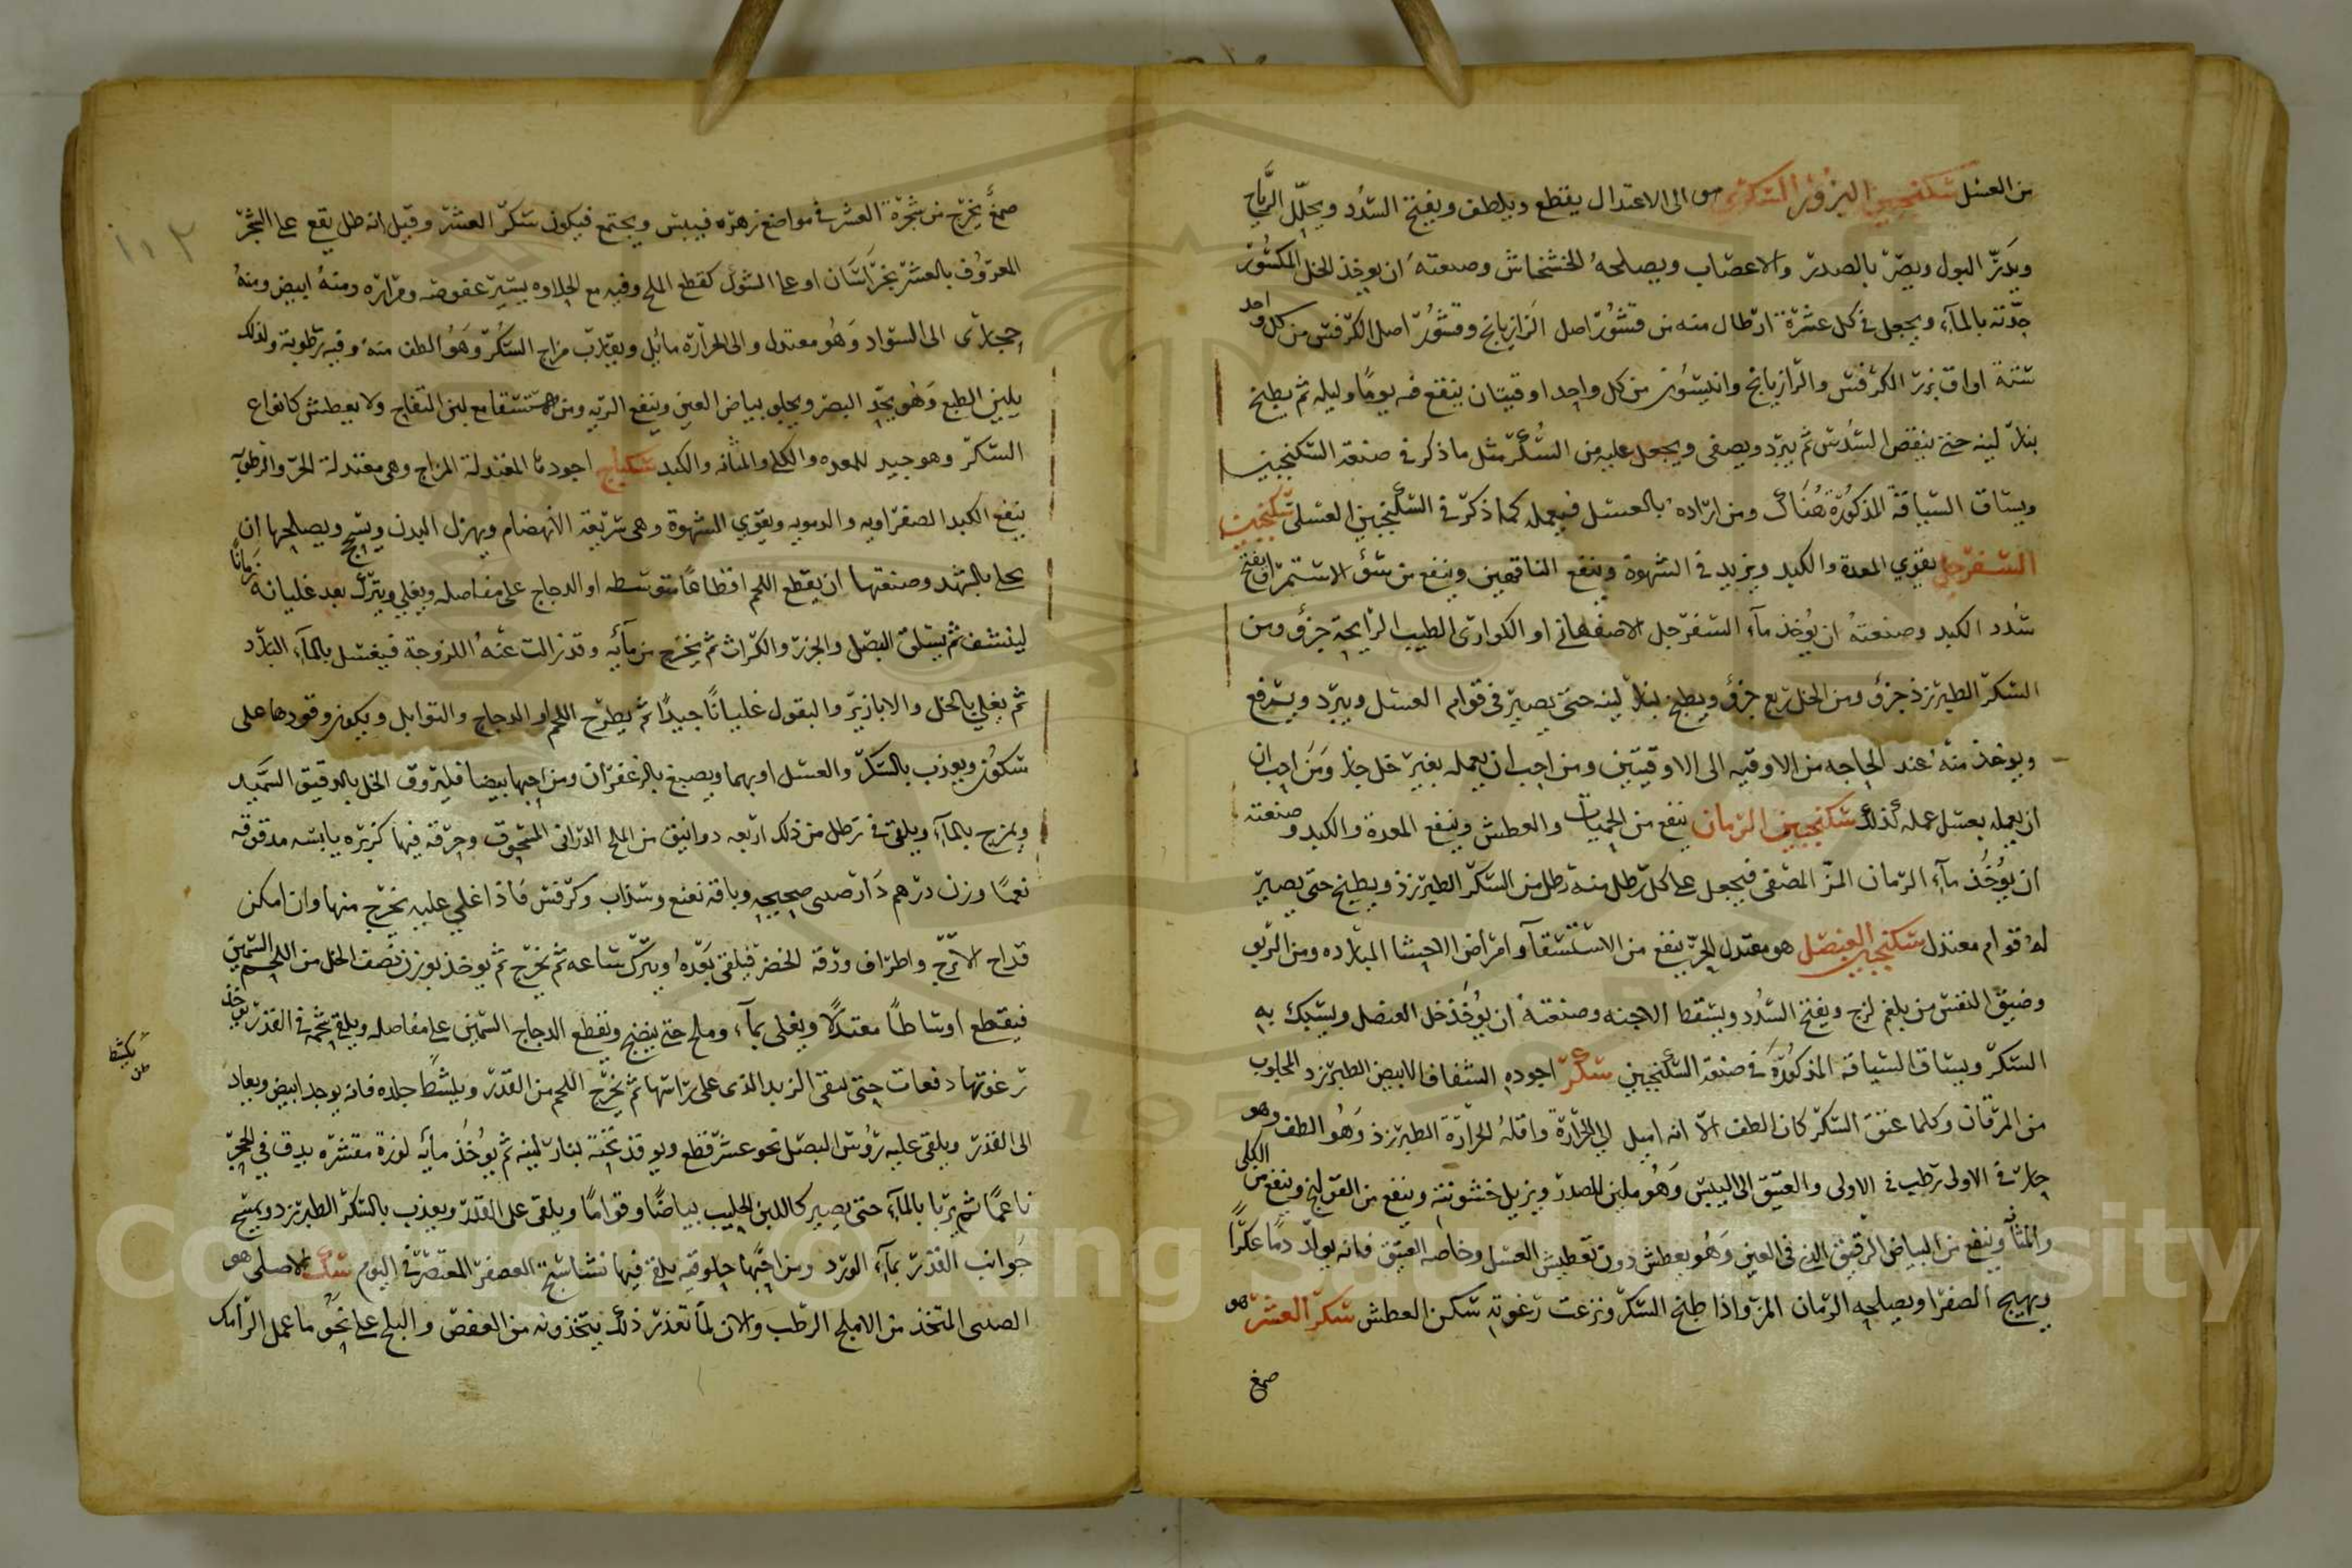 من العسل سكنجبين البزور السكري هو الى الاعتدال يقطع ويلطف ويفتح السدد ويحلل الرياح
ويدر البول ويضر بالصدر والاعصاب ويصلحه الخشخاش وصنعته ان يوخذ الخل المكسور
حدته بالمآء ويجعل في كل عشرة ارطال منه من قشور اصل الرازيانج وقشور اصل الكرفس من كل واحد
ستة اواق بزر الكرفس والرازيانج وانيسون من كل واحد اوقيتان ينقع فيه يوما وليله ثم يطبخ
بنار لينه حتى ينقص السدس ثم يبرد ويصفى ويجعل عليه من السكر مثل ما ذكر في صنعة السكنجبين
ويساق السياقة المذكورة هناك ومن اراده بالعسل فيعمله كما ذكر في السكنجبين العسلي سكنجبين
السفرجلي يقوي المعدة والكبد ويزيد في الشهوة وينفع الناقهين وينفع من سوء الاستمرا ويفتح
سدد الكبد وصنعته ان يؤخذ مآء السفرجل الاصفهاني او الكواري الطيب الرايحة جزؤ ومن
السكر الطبرزذ جزؤ ومن الخل ربع جزؤ ويطبخ بنار لينه حتى يصير في قوام العسل ويبرد ويرفع
ويوخذ منه عند الحاجه من الاوقيه الى الاوقيتين ومن احب ان يعمله بغير خل جاز ومن احب ان
ان يعمله بعسل عمله كذلك سكنجبين الرمان ينفع من الحميات والعطش وينفع المعدة والكبد وصنعته
ان يؤخذ مآء الرمان المز المصفى فيجعل على كل رطل منه رطل من السكر الطبرزذ ويطبخ حتى يصير
له قوام معتدل سكنجبين العنصل هو معتدل الحر ينفع من الاستسقآ وامراض الاحشا البارده ومن الربو
وضيق النفس من بلغم لزج ويفتح السدد ويسقط الاجنه وصنعته ان يؤخذ خل العنصل ويسبك به
السكر ويساق السياقة المذكورة في صنعة السكنجبين سكر اجوده الشفاف الابيض الطبرزد المجلوب
من المرقان وكلما عتق السكر كان الطف الا انه اميل الى الحرارة واقله الحرارة الطبرزذ وهو الطف وهو
حار في الاولى رطب في الاولى والعتيق الى اليبس وهو ملين للصدر ويزيل خشونته وينفع من القولنج وينفع من الكلى
والمثانة وينفع من البياض الرقيق الذي في العين وهو يعطش دون تعطيش العسل وخاصه العتيق فانه يولد دما عكرا
ويهيج الصفرا ويصلحه الرمان المز واذا طبخ السكر ونزعت رغوته سكن العطش سكر العشر هو
صمغ
صمغ يخرج من شجرة العشر في مواضع زهره فييبس ويجتمع فيكون سكر العشر وقيل انه طل يقع على الشجر
المعروف بالعشر بخراسان او على الشوك كقطع الملح وفيه مع الحلاوه يسير عفوصه ومراره ومنه ابيض ومنه
حجازي الى السواد وهو معتدل والى الحرارة مائل ويقارب مزاج السكر وهو الطف منه وفيه رطوبة ولذلك
يلين الطبع وهو يحد البصر ويجلي بياض العين وينفع الريه ومن الاستسقا مع لبن اللقاح ولا يعطش كانواع
السكر وهو جيد للمعده والكلى والمثانه والكبد سكباج اجودها المعتدلة المزاج وهي معتدلة الحر والرطوبة
ينفع الكبد الصفراويه والدمويه ويقوي الشهوة وهي سريعة الانهضام ويهزل البدن ويسحج ويصلحها ان
يحلى بالشهد وصنعتها ان يقطع اللحم اقطاعا متوسطه او الدجاج على مفاصله ويغلي ويترك بعد غليانه زمانا
لينشف ثم يسلق البصل والجزر والكراث ثم يخرج من مآئه وقد زالت عنه اللزوجة فيغسل بالمآء البارد
ثم يغلي بالخل والابازير والبقول غليانا جيدا ثم يطرح اللحم او الدجاج والتوابل ويكون وقودها على
سكون ويعذب بالسكر والعسل او بهما ويصبغ بالزعفران ومن احبها بيضا فليروق الخل بالدقيق السميد
ويمزج بالمآء ويلقى في رطل من ذلك اربعه دوانيق من الملح الدراني المسحوق وخرقه فيها كزبره يابسه مدقوقه
نعما وزن درهم دارصيني صحيحه وباقه نعنع وسذاب وكرفس فاذا اغلي عليه يخرج منها وان امكن
قداح الاترج واطراف ورقه الخضر فيلقى بعده ويترك ساعه ثم يخرج ثم يوخذ بوزن نصف الخل من اللحم السمين
فيقطع اوساطا معتدلا ويغلى بمآء وملح حتى ينضج ويقطع الدجاج السمين على مفاصله ويلقى شحمه في القدر يوخذ
رغوتها دفعات حتى ينقى الزبد الذي على راسها ثم يخرج اللحم من القدر ويكشط جلده فانه يوجد ابيض ويعاد
الى القدر ويلقى عليه رؤس البصل نحو عشر قطع ويوقد تحته بنار لينه ثم يؤخذ مائة لوزة مقشره يدق في الحجر
ناعما ثم يربا بالمآء حتى يصير كاللبن الحليب بياضا وقواما ويلقى على القدر ويعذب بالسكر الطبرزد ويمسح
جوانب القدر بمآء الورد ومن احبها خلوقيه يلقى فيها نشاستج العصفر المعتصر في اليوم سك الاصلي هو
الصيني المتخذ من الاملج الرطب والان لما تعذر ذلك يتخذونه من العفص والبلح على نحو ما عمل الرامك
يكشط